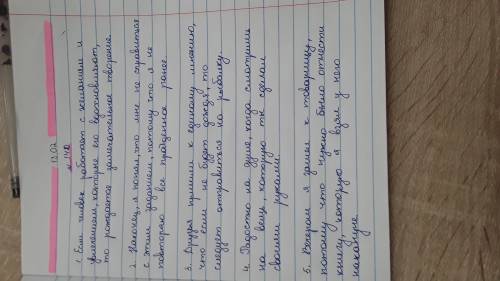 12.02
№ 140
1. Если человек работает с желанием и
увлечением, которые его вдохновляют,
то рождается замечательное творение.
2. Наконец, я понял, что мне не справиться
с этим заданием, потому что я не
повторяю все пройденное ранее.
3. Друзья пришли к единому мнению,
что если не будет дождя, то
следует отправиться на рыбалку.
4. Радостно на душе, когда смотришь
на вещь, которую ты сделал
своими руками.
5. Вечером я зашел к товарищу,
потому что нужно было отнести
книгу, которую я взял у него
накануне